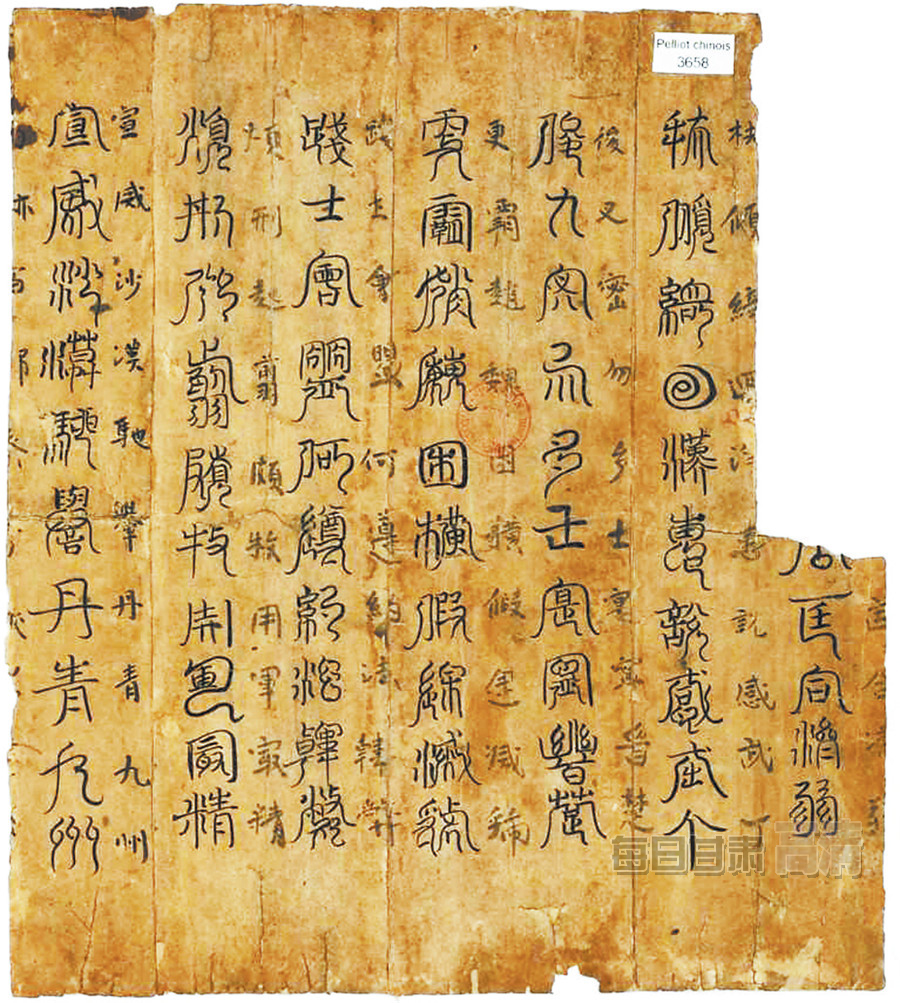 Pelliot chinois
3658
匡合濟弱
匡合濟弱
扶傾綺迴漢惠説感武丁
扶傾綺回漢惠説感武丁
俊乂密勿多士寔寧晉楚
俊乂密勿多士寔寧晉楚
更霸趙魏困橫假途滅虢
更霸趙魏困橫假途滅虢
踐土會盟何遵約法韓弊
踐土會盟何遵約法韓弊
煩刑起翦頗牧用軍最精
煩刑起翦頗牧用軍最精
宣威沙漠馳譽丹青九州
宣威沙漠馳譽丹青九州
每日甘肃 高清